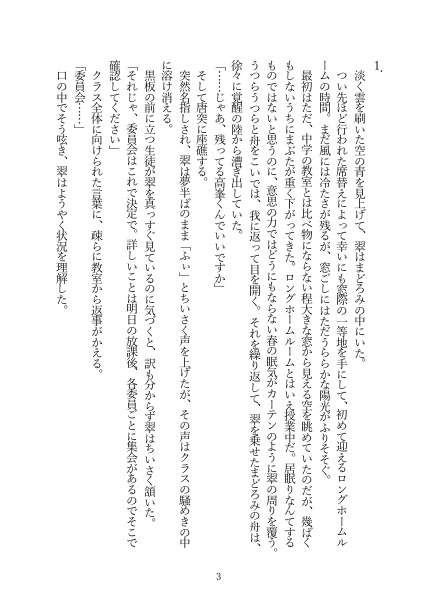 1.
淡く雲を刷いた空の青を見上げて、翠はまどろみの中にいた。
つい先ほど行われた席替えによって幸いにも窓際の一等地を手にして、初めて迎えるロングホームル
ームの時間。まだ風には冷たさが残るが、窓ごしにはただうららかな陽光がふりそそぐ。
最初はただ、中学の教室とは比べ物にならない程大きな窓から見える空を眺めていたのだが、幾ばく
もしないうちにまぶたが重く下がってきた。ロングホームルームとはいえ授業中だ。居眠りなんてする
ものではないと思うのに、意思の力ではどうにもならない春の眠気がカーテンのように翠の周りを覆う。
うつらうつらと舟をこいでは、我に返って目を開く。それを繰り返して、翠を乗せたまどろみの舟は、
徐々に覚醒の陸から漕ぎ出していた。
「……じゃあ、残ってる高峯くんでいいですか」
そして唐突に座礁する。
突然名指しされ、翠は夢半ばのまま「ふぃ」とちいさく声を上げたが、その声はクラスの騒めきの中
に溶け消える。
黒板の前に立つ生徒が翠を真っすぐ見ているのに気づくと、訳も分からず翠はちいさく頷いた。
「それじゃ、委員会はこれで決定で。詳しいことは明日の放課後、各委員ごとに集会があるのでそこで
確認してください」
クラス全体に向けられた言葉に、疎らに教室から返事がかえる。
「委員会……」
口の中でそう呟き、翠はようやく状況を理解した。
3